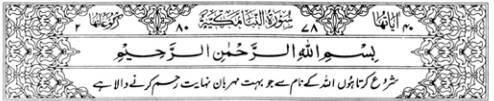 اٰیَاتُهَا ۴۰ سُوْرَةُ النَّبَاِ مَكِّیَّةٌ ۷۸ ۸۰ رُكُوْعَاتُهَا ۲
بِسْمِ اللهِ الرَّحْمٰنِ الرَّحِیْمِ
شروع کرتا ہوں اللہ کے نام سے جو بہت مہربان نہایت رحم کرنے والا ہے